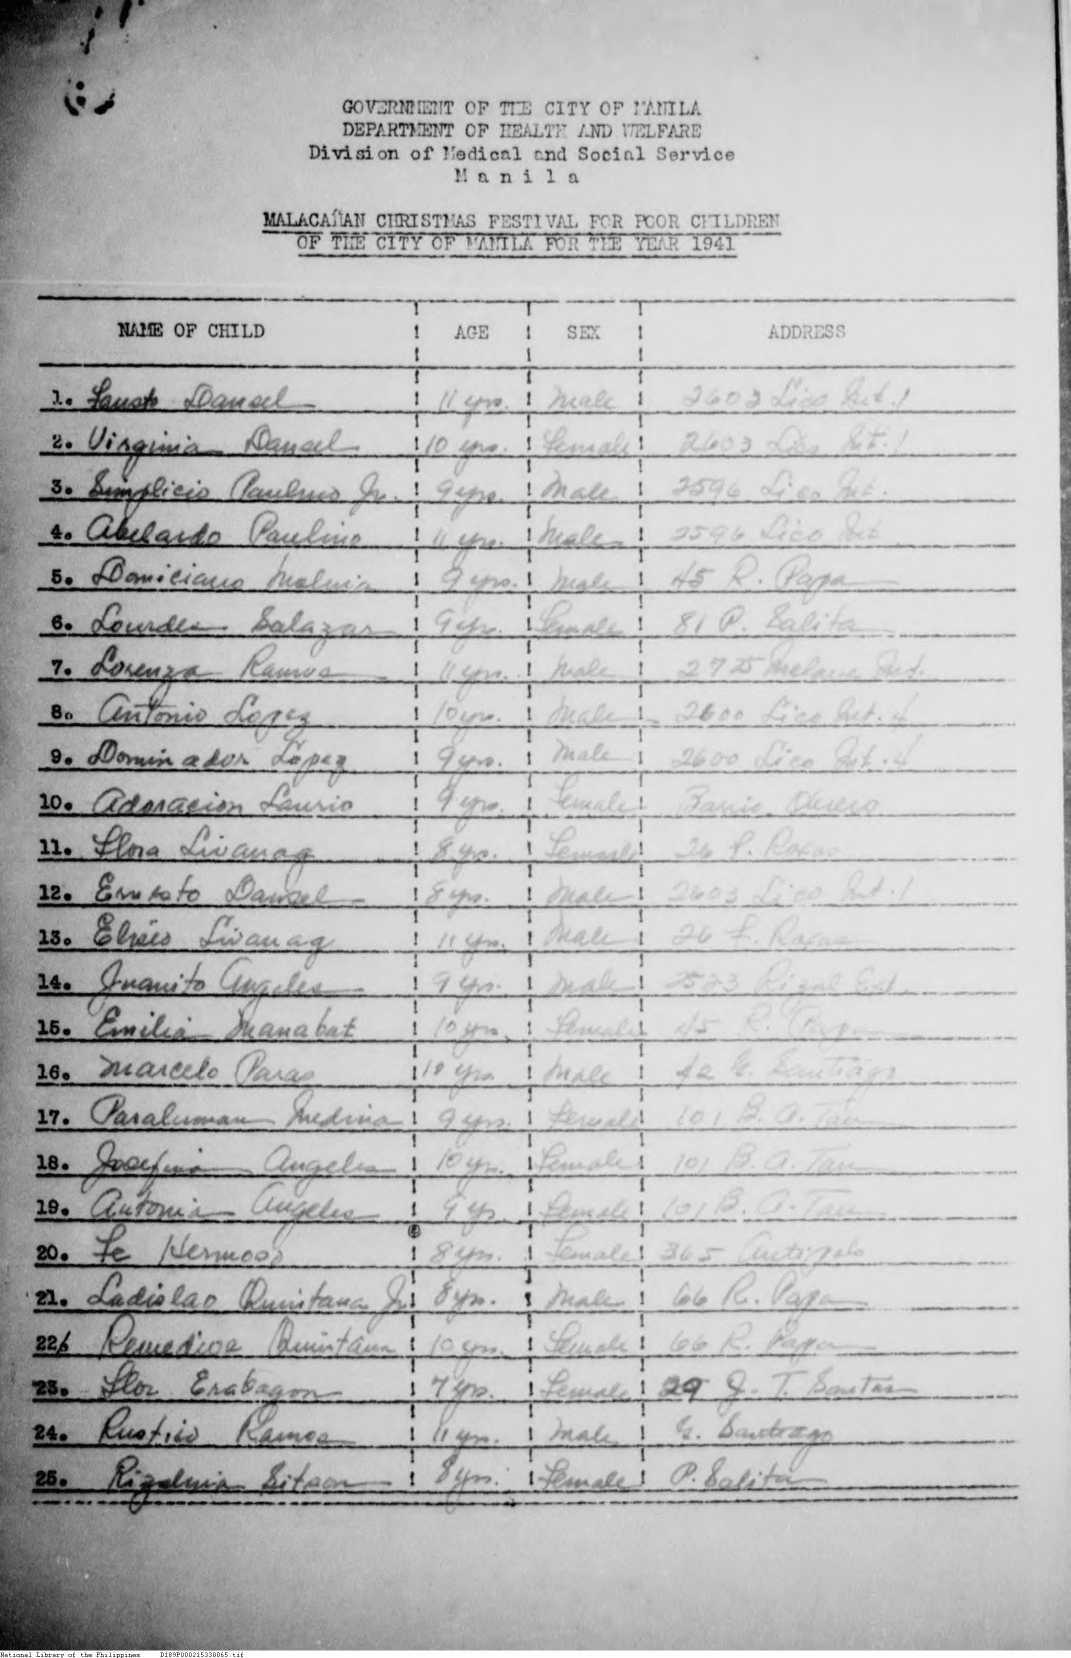 GOVERNMENT OF THE CITY OF MANILA
DEPARTMENT OF HEALTH AND WELFARE
Division of Medical and Social Service
M a n i l a
MALACAÑAN CHRISTMAS FESTIVAL FOR POOR CHILDREN
OF THE CITY OF MANILA FOR THE YEAR 1941
NAME OF CHILD ! AGE ! SEX ! ADDRESS
1. Fausto Dansel ! 11 yrs. ! Male ! 2603 Lico Int. 1
2. Virginia Dansel ! 10 yrs. ! Female ! 2603 Lico Int. 1
3. Simplicio Paulino Jr. ! 9 yrs. ! Male ! 2596 Lico Int.
4. Abelardo Paulino ! 11 yrs. ! Male ! 2596 Lico Int
5. Domiciano ! 9 yrs. ! Male ! 45 R. Papa
6. Lourdes Salazar ! 9 yrs. ! Female ! 81 P. Salita
7. Lorenza Ramos ! 11 yrs. ! Male ! 2725 Int.
8. Antonio Lopez ! 10 yrs. ! Male ! 2600 Lico Int. 4
9. Dominador Lopez ! 9 yrs. ! Male ! 2600 Lico Int. 4
10. Adoracion Laurio ! 9 yrs. ! Female ! Barrio Obrero
11. Flora Livanag ! 8 yrs. ! Female ! 26 F. Roxas
12. Ernesto Dansel ! 8 yrs. ! Male ! 2603 Lico Int. 1
13. Eliseo Livanag ! 11 yrs. ! Male ! 26 F. Roxas
14. Juanito Angeles ! 9 yrs. ! Male ! 2523 Rizal Ext.
15. Emilia Manabat ! 10 yrs. ! Female ! 45 R. Papa
16. Marcelo Paras ! 10 yrs ! Male ! 42 G. Santiago
17. Paraluman Medina ! 9 yrs. ! Female ! 101 B. A. Tan
18. Josefina Angeles ! 10 yrs. ! Female ! 101 B. A. Tan
19. Antonia Angeles ! 9 yrs ! Female ! 101 B. A. Tan
20. Fe Hermoso ! 8 yrs. ! Female ! 365 Antipolo
21. Ladislao Quintana Jr. ! 8 yrs. ! Male ! 66 R. Papa
22. Remedios Quintana ! 10 yrs. ! Female ! 66 R. Papa
23. Flor Erabagon ! 7 yrs. ! Female ! 29 J. T. Santos
24. Rustico Ramos ! 11 yrs. ! Male ! G. Santiago
25. Rizalina Sitson ! 8 yrs. ! Female ! P. Salita
National Library of the Philippines D189P000215330065.tif